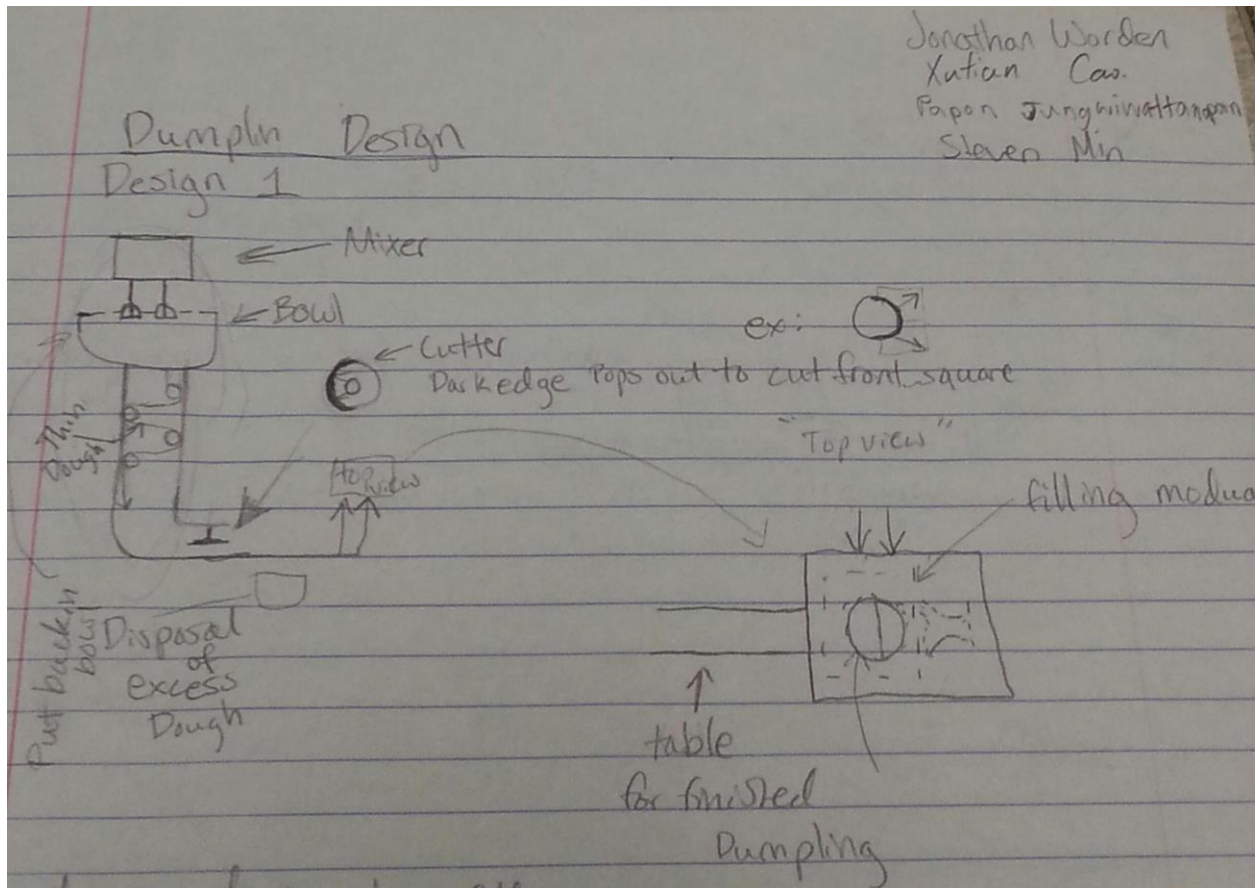 Jonathan Worden
Xutian Cao.
Papon Jungwiwattanaporn
Steven Min
Dumplin Design
Design 1
Mixer
Bowl
ex:
Cutter
Dark edge Pops out to cut front square
"Top view"
Thin
Dough
top view
filling modua
Put back in
bowl
Disposal
of
excess
Dough
table
for finished
Dumpling